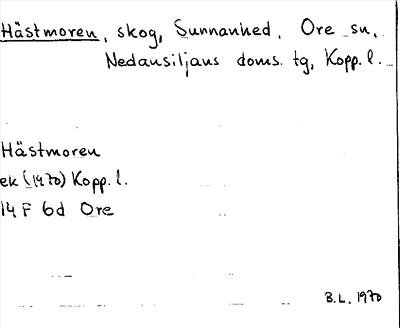 Hästmoren, skog, Sunnanhed, Ore sn,
Nedansiljans doms. tg, Kopp. l.
Hästmoren
ek (1970) Kopp. l.
14 F 6d Ore
B.L. 1970